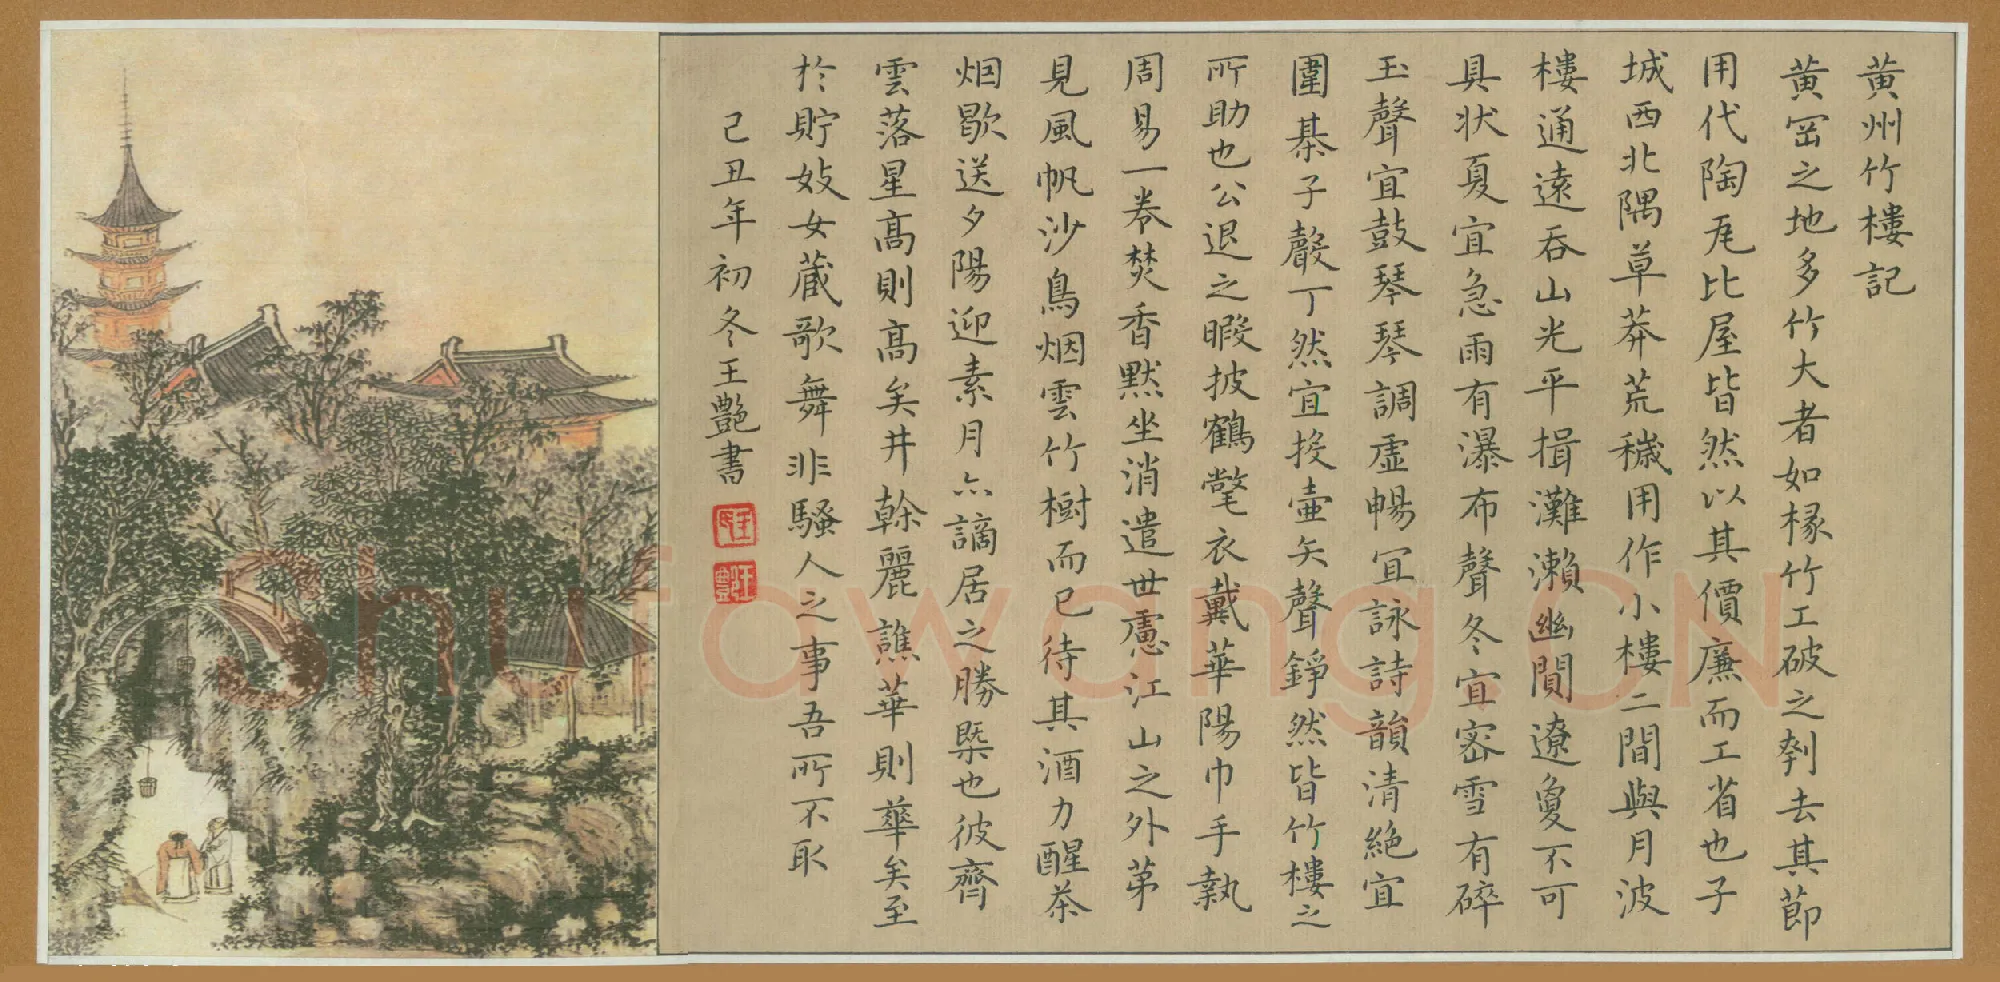 黄州竹樓記
黄罡之地多竹大者如椽竹工破之刳去其節
用代陶瓦比屋皆然以其價廉而工省也子
城西北隅草莽荒穢用作小樓二間與月波
樓通遠吞山光平揖灘瀨幽閴遼夐不可
具状夏宜急雨有瀑布聲冬宜密雪有碎
玉聲宜鼓琴琴調虛暢宜詠詩韻清絶宜
圍棊子聲丁然宜投壷矢聲錚然皆竹樓之
所助也公退之暇披鶴氅衣戴華陽巾手執
周易一卷焚香默坐消遣世慮江山之外苐
見風帆沙鳥烟雲竹樹而已待其酒力醒茶
烟歇送夕陽迎素月亦謫居之勝槩也彼齊
雲落星髙則髙矣井榦麗譙華則華矣至
於貯妓女蔵歌舞非騷人之事吾所不取
己丑年初冬王艷書
Shufawang.CN